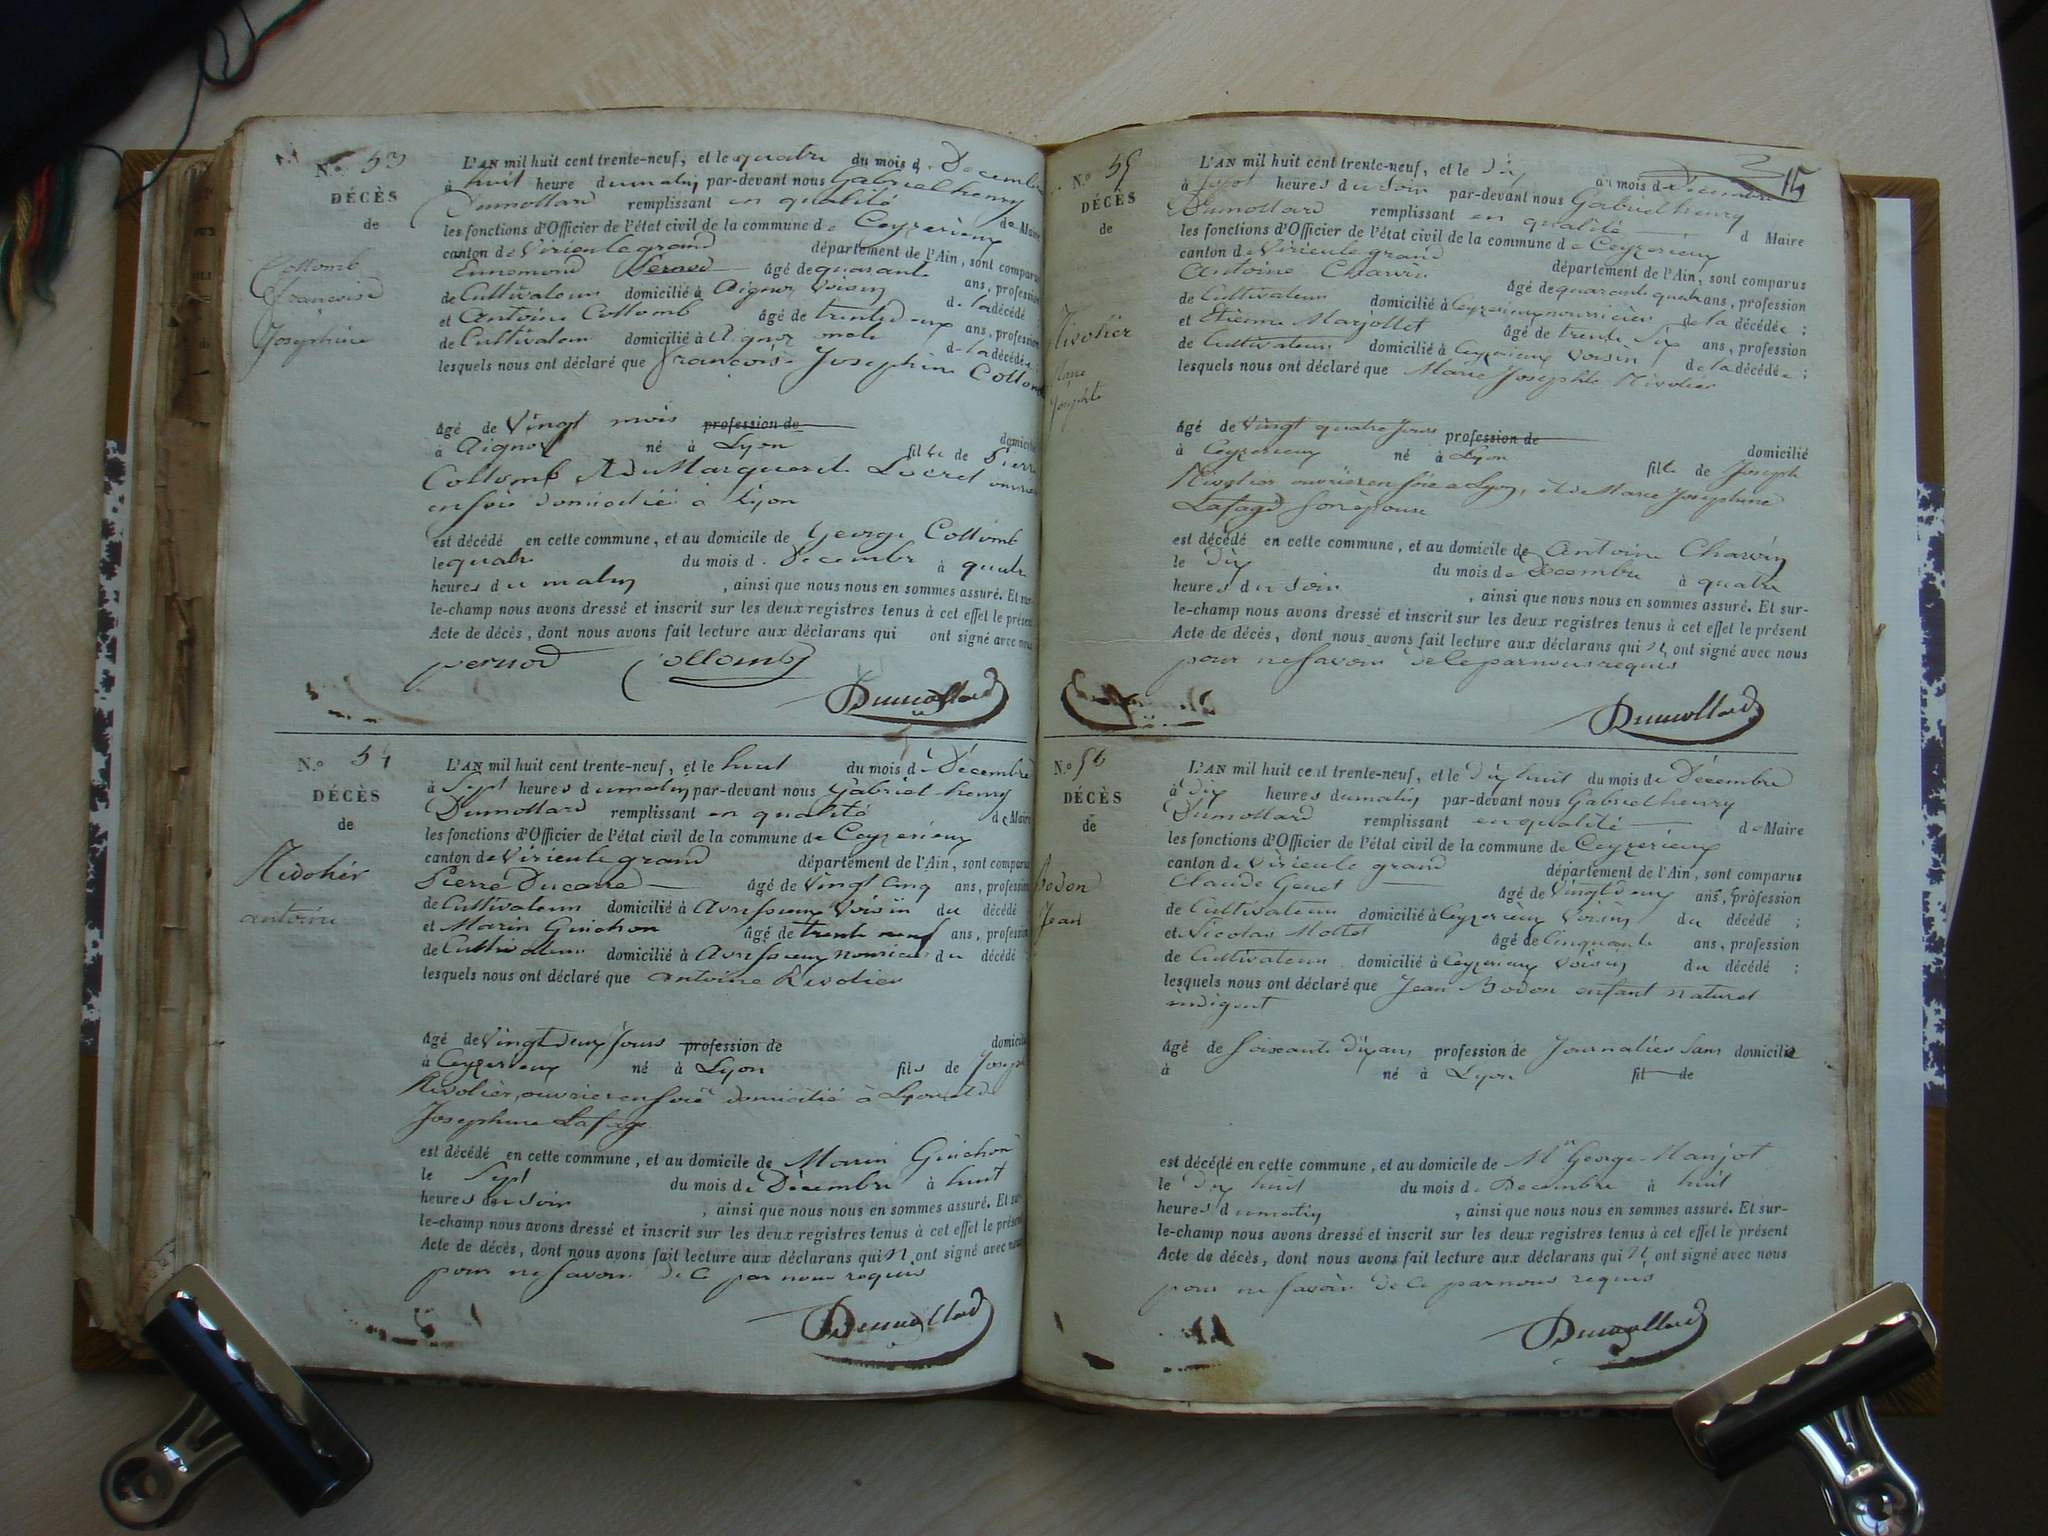 N.o 53
DÉCÈS
de
Collomb
françoise
Josephine
L'AN mil huit cent trente-neuf, et le quatre du mois d Décembre
à huit heure du matin par-devant nous Gabriel henry
Dumollard remplissant en qualité de Maire
les fonctions d'Officier de l'état civil de la commune de Ceyzerieux
canton de Virieu le grand département de l'Ain, sont comparus
Ennemond Pernod âgé de quarante ans, profession
de Cultivateur domicilié à Aignoz Voisin de la décédé
et Antoine Collomb âgé de trente deux ans, profession
de Cultivateur domicilié à Aignoz de la décédée ;
lesquels nous ont déclaré que françoise Josephine Collomb
âgé de Vingt mois profession de domicilié
à Aignoz né à Lyon fille de Pierre
Collomb et de Marguerite ouvriers
en soie domicilié à Lyon
est décédé en cette commune, et au domicile de George Collomb
le quatre du mois d. Décembre à quatre
heures du matin , ainsi que nous nous en sommes assuré. Et sur-
le-champ nous avons dressé et inscrit sur les deux registres tenus à cet effet le présent
Acte de décès, dont nous avons fait lecture aux déclarans qui ont signé avec nous
pernod Collomb
Dumollard
N.o 54
DÉCÈS
de
Rivolier
antoine
L'AN mil huit cent trente-neuf, et le huit du mois de Décembre
à Sept heures du matin par-devant nous Gabriel henry
Dumollard remplissant en qualité de Maire
les fonctions d'Officier de l'état civil de la commune de Ceyzerieux
canton de Virieu le grand département de l'Ain, sont comparus
Pierre Ducarre âgé de Vingt Cinq ans, profession
de Cultivateur domicilié à Avrissieux Voisin du décédé
et Marin Guichon âgé de trente neuf ans, profession
de Cultivateur domicilié à Avrissieux nourricier du décédé
lesquels nous ont déclaré que antoine Rivolier
âgé de Vingt deux Jours profession de domicilié
à Ceyzerieux né à Lyon fils de Joseph
Rivolier, ouvrier en soie domicilié à Lyon et de
Josephine Lafage
est décédé en cette commune, et au domicile de Marin Guichon
le Sept du mois de Décembre à huit
heures du soir , ainsi que nous nous en sommes assuré. Et sur-
le-champ nous avons dressé et inscrit sur les deux registres tenus à cet effet le présent
Acte de décès, dont nous avons fait lecture aux déclarans qui n'ont signé avec nous
pour ne savoir de ce par nous requis
Dumollard
15
N.o 55
DÉCÈS
de
Rivolier
Marie
Josephte
L'AN mil huit cent trente-neuf, et le dix du mois de Décembre
à Sept heures du soir par-devant nous Gabriel henry
Dumollard remplissant en qualité d Maire
les fonctions d'Officier de l'état civil de la commune de Ceyzerieux
canton de Virieu le grand département de l'Ain, sont comparus
Antoine Charvin âgé de quarante quatre ans, profession
de Cultivateur domicilié à Ceyzerieux nourricier de la décédée ;
et Etienne Marjollet âgé de trente Six ans, profession
de Cultivateur domicilié à Ceyzerieux Voisin de la décédée ;
lesquels nous ont déclaré que Marie Josephte Rivolier
âgé de Vingt quatre Jours profession de domicilié
à Ceyzerieux né à Lyon fille de Joseph
Rivolier ouvrier en soie à Lyon, et de Marie Josephine
Lafage son épouse
est décédé en cette commune, et au domicile de Antoine Charvin
le dix du mois de Décembre à quatre
heures du soir , ainsi que nous nous en sommes assuré. Et sur-
le-champ nous avons dressé et inscrit sur les deux registres tenus à cet effet le présent
Acte de décès, dont nous avons fait lecture aux déclarans qui n'ont signé avec nous
pour ne savoir de le par nous requis
Dumollard
N.o 56
DÉCÈS
de
Bodon
Jean
L'AN mil huit cent trente-neuf, et le dix huit du mois de Décembre
à dix heures du matin par-devant nous Gabriel henry
Dumollard remplissant en qualité de Maire
les fonctions d'Officier de l'état civil de la commune de Ceyzerieux
canton de Virieu le grand département de l'Ain, sont comparus
Claude Genet âgé de Vingt deux ans, profession
de Cultivateur domicilié à Ceyzerieux Voisin du décédé ;
et Nicolas Mottet âgé de Cinquante ans, profession
de Cultivateur domicilié à Ceyzerieux Voisin du décédé ;
lesquels nous ont déclaré que Jean Bodon enfant naturel
indigent
âgé de soixante dix ans profession de Journalier Sans domicilié
à né à Lyon fil de
est décédé en cette commune, et au domicile de Mr George Manjot
le dix huit du mois d. Décembre à huit
heures du matin , ainsi que nous nous en sommes assuré. Et sur-
le-champ nous avons dressé et inscrit sur les deux registres tenus à cet effet le présent
Acte de décès, dont nous avons fait lecture aux déclarans qui n'ont signé avec nous
pour ne savoir de ce par nous requis
Dumollard